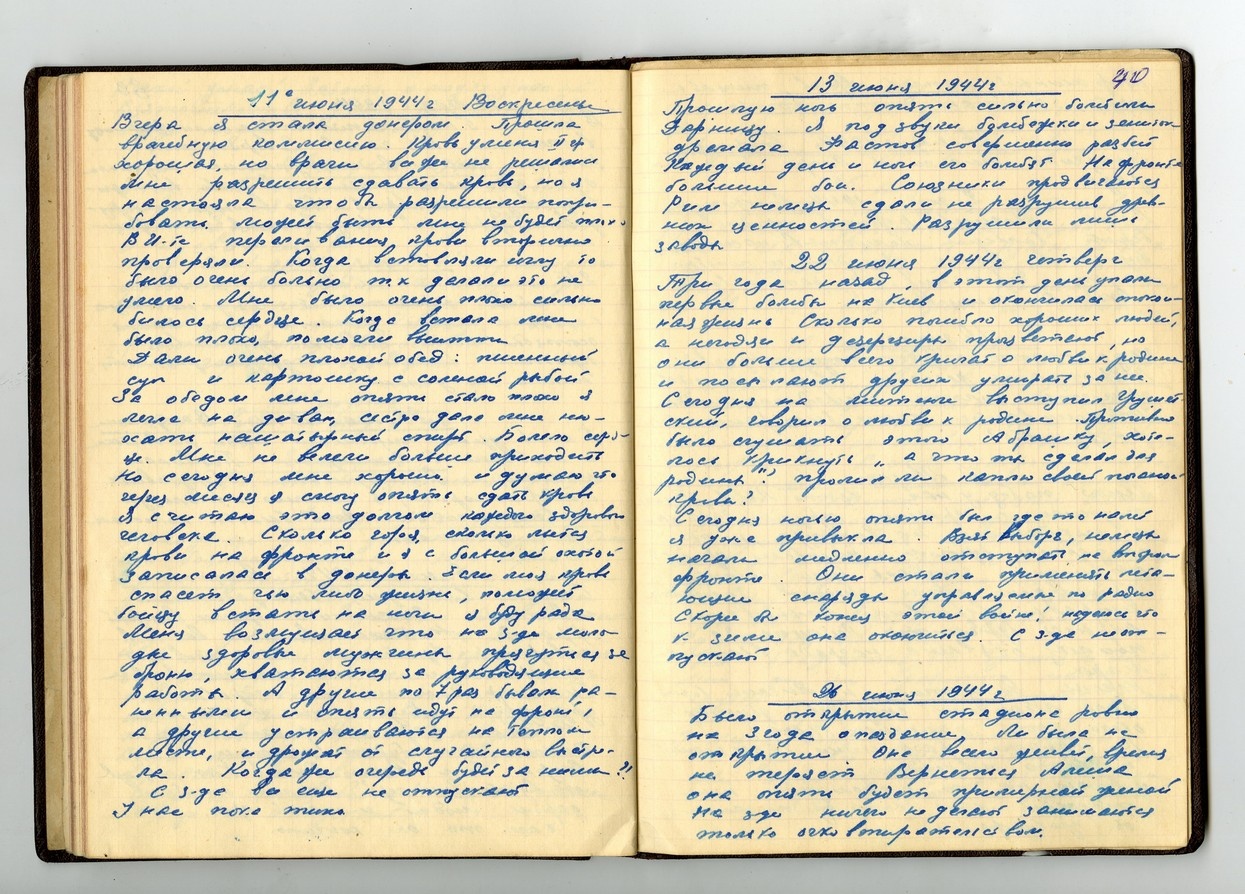 11º июня 1944г Воскресенье
Вчера я стала донером. Прошла
врачебную комиссию. Кровь у меня II гр
хорошая, но врачи все же не решались
мне разрешить сдавать кровь, но я
настояла чтобы разрешили попро-
бовать может быть мне не будет плохо
В И-те переливания крови вторично
проверяли. Когда вставляли иглу то
было очень больно т.к делали это не
умело. Мне было очень плохо сильно
билось сердце. Когда встала мне
было плохо, помогли выйти
Дали очень плохой обед: пшенный
суп и картошку с соленой рыбой
За обедом мне опять стало плохо я
легла на диван, сестра дала мне ню-
хать нашатырный спирт. Болело серд-
це. Мне не велели больше приходить
Но сегодня мне хорошо и думаю что
через месяц я смогу опять сдать кровь
Я считаю это долгом каждого здорового
человека. Сколько горя, сколько льется
крови на фронте и я с большой охотой
записалась в донеры. Если моя кровь
спасет чью либо жизнь, поможет
бойцу встать на ноги я буду рада
Меня возмущает что на з-де моло-
дые здоровые мужчины прячутся за
броню, хватаются за руководящие
работы. А другие по 7 раз бывали ра-
ненными и опять идут на фронт,
а другие устраиваются на теплом
месте, и дрожат от случайного выстре-
ла. Когда же очередь будет за ними?!
С з-да все еще не отпускают
У нас пока тихо
40
13 июня 1944г
Прошлую ночь опять сильно бомбили
Дарницу. Я под звуки бомбежки и зениток
дремала Фастов совершенно разбит
Каждый день и ночь его бомбят. На фронте
большие бои. Союзники продвигаются
Рим немцы сдали не разрушив древ-
них ценностей. Разрушили лишь
заводы
22 июня 1944г четверг
Три года назад, в этот день упали
первые бомбы на Киев и окончилась спокой-
ная жизнь Сколько погибло хороших людей,
а негодяи и дезертиры процветают, но
они больше всего кричат о любви к родине
и посылают других умирать за нее.
Сегодня на митинге выступил Грушев-
ский, говорил о любви к родине. Противно
было слушать этого Абрашку, хоте-
лось крикнуть „а что ты сделал для
родины"? пролил ли каплю своей поганой
крови?
Сегодня ночью опять был где то налет
я уже привыкла. Взят Выборг, немцы
начали медленно отступать на втором
фронте. Они стали применять лета-
ющие снаряды управляемые по радио
Скорее бы конец этой войне! надеюсь что
к зиме она окончиться. С з-да не от-
пускают
26 июня 1944г
Было открытие стадиона ровно
на 3 года опоздание. Мы была на
открытии Она весело живет, время
не теряет Вернется Алеша
она опять будет примерной женой
На з-де ничего не делают занимаются
только очковтирательством.